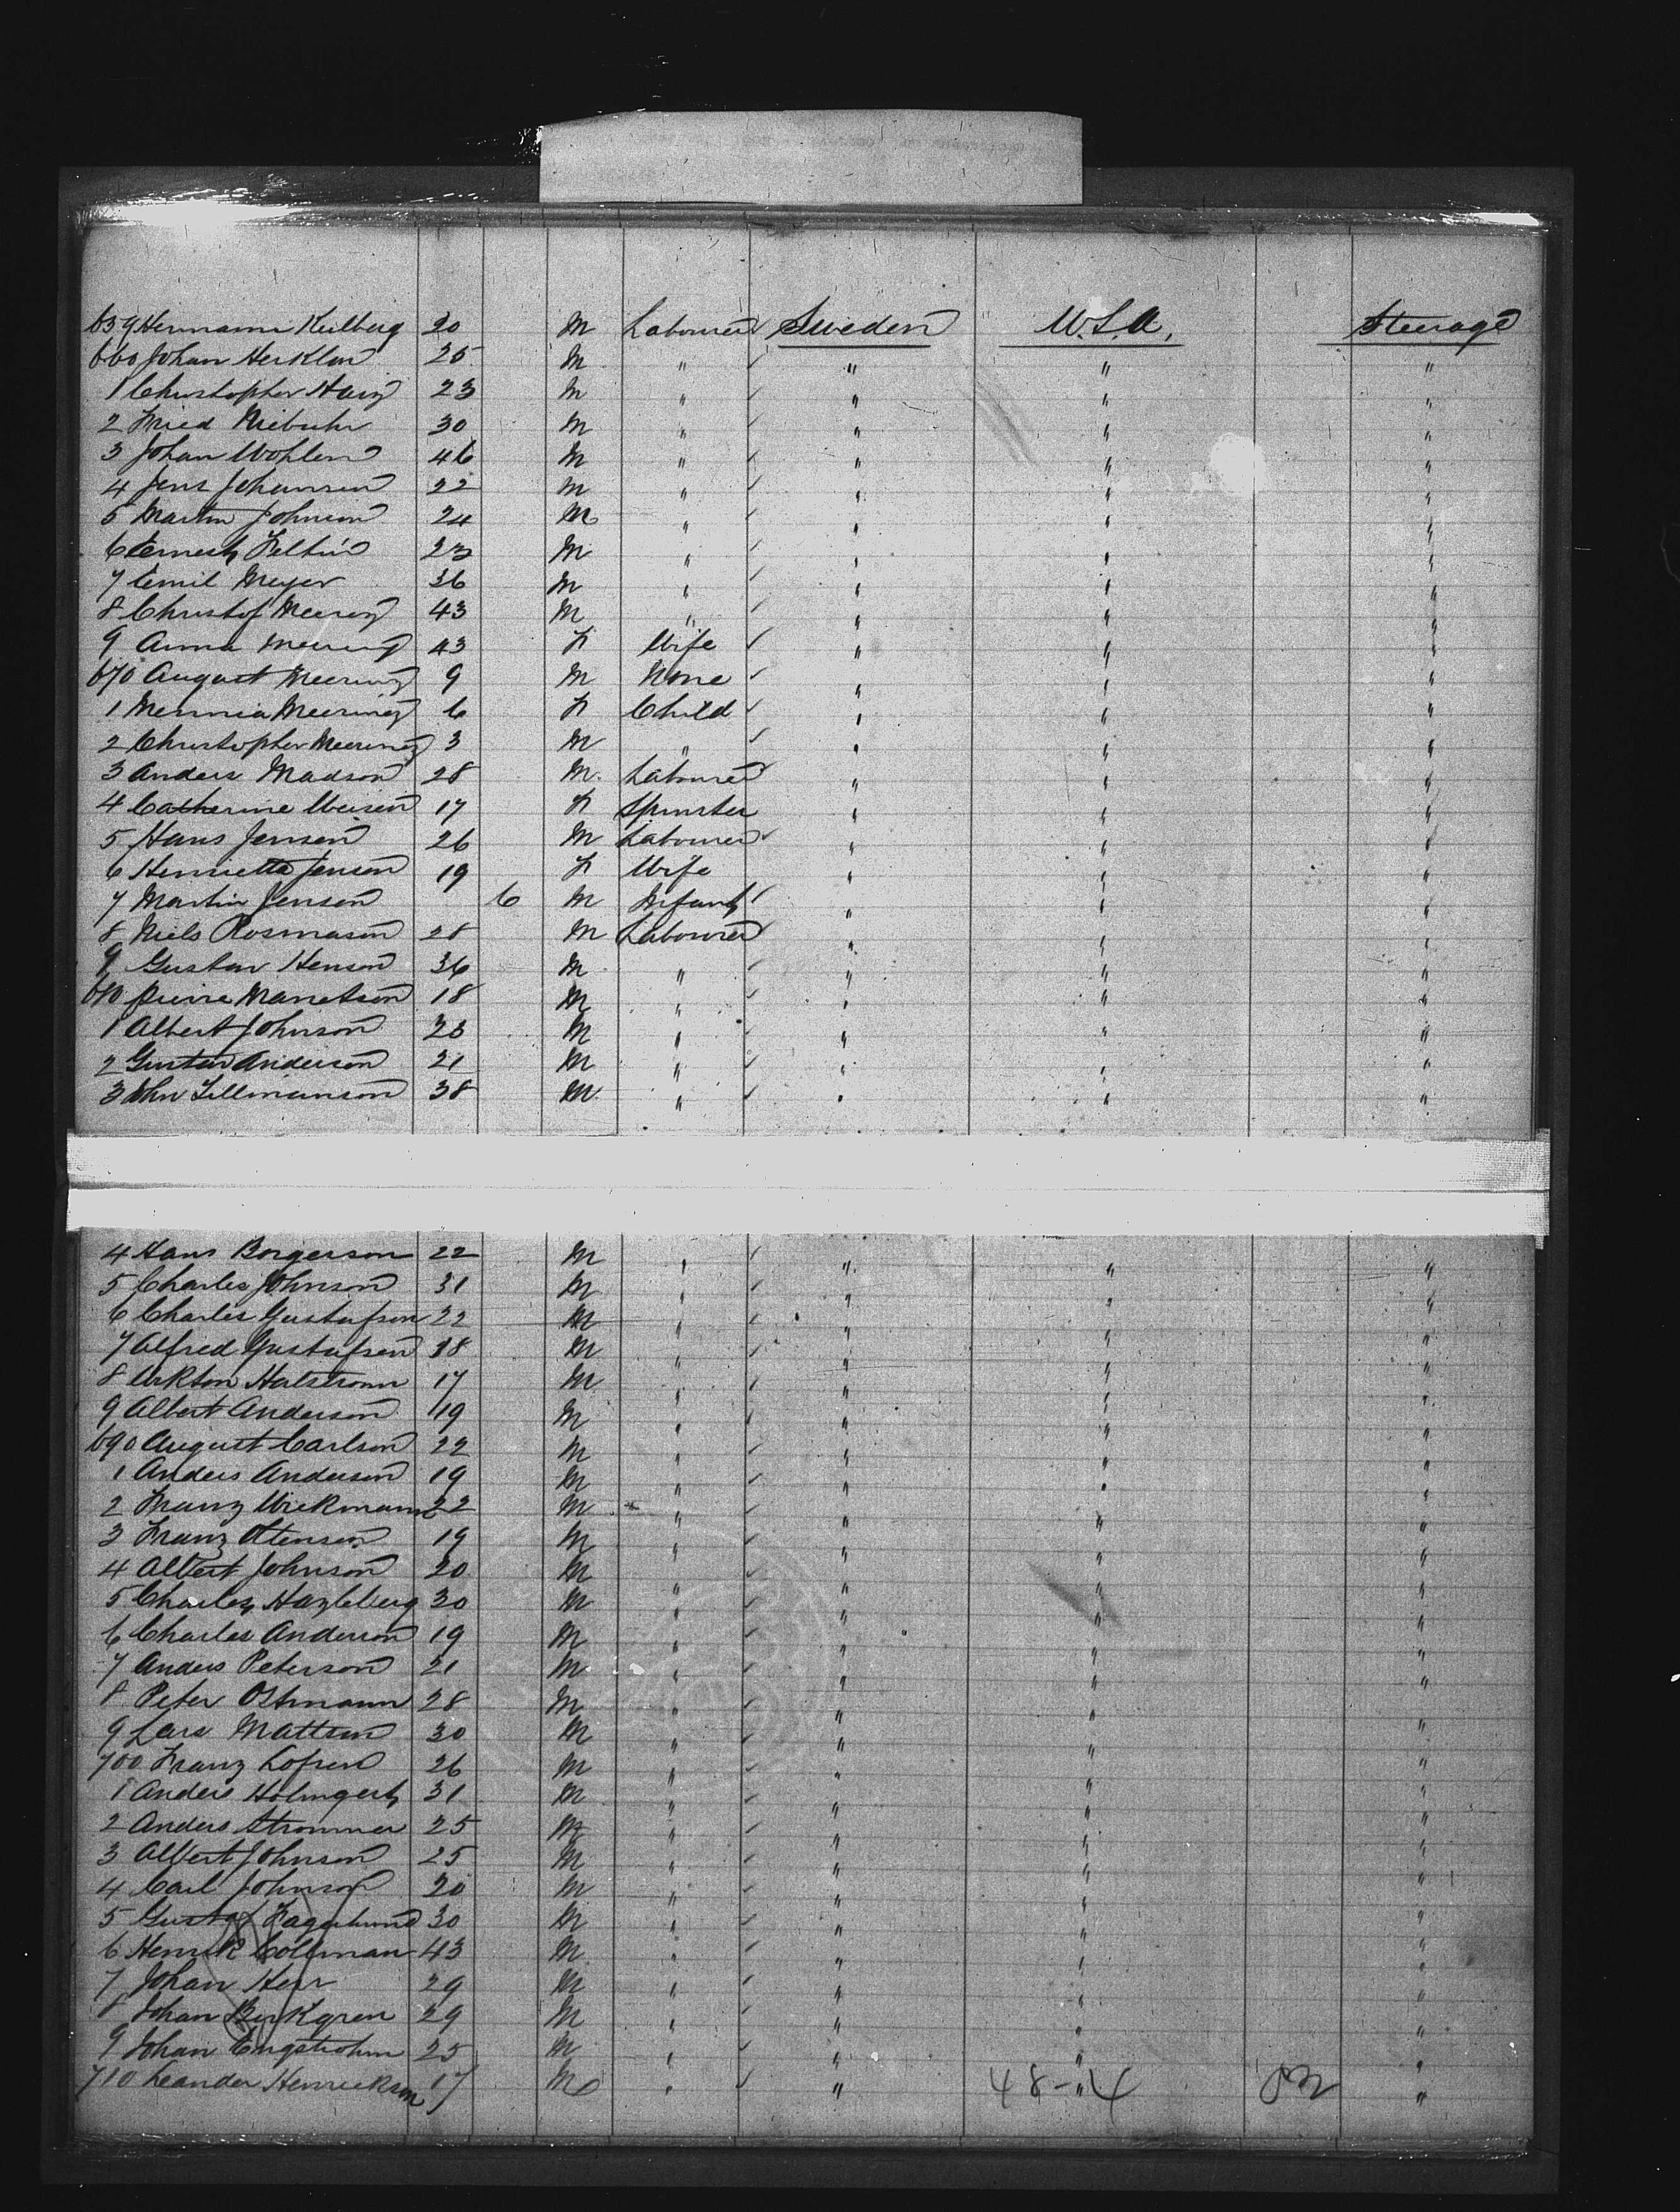 659 Hermann Keilberg 20 M Labourer Sweden U.S.A. Steerage
660 Johan Herklan 25 M " " " "
1 Christopher Harz 23 M " " " "
2 Fried Niebuhr 30 M " " " "
3 Johan Wohlen 46 M " " " "
4 Jens Johansen 22 M " " " "
5 Martin Johnson 24 M " " " "
6 Ernest Feltin 23 M " " " "
7 Emil Meyer 36 M " " " "
8 Christof Meering 43 M " " " "
9 Anna Meering 43 F Wife " " "
670 August Meering 9 M None " " "
1 Meering 6 F Child " " "
2 Christopher Meering 3 M " " " "
3 Anders Madson 28 M Labourer " " "
4 Catherine 17 F Spinster " " "
5 Hans Jenson 26 M Labourer " " "
6 Henrietta Jenson 19 F Wife " " "
7 Martin Jenson 6 M Infant " " "
8 Niels Rosmason 28 M Labourer " " "
9 Gustav Henson 36 M " " " "
680 18 M " " " "
1 Albert Johnson 23 M " " " "
2 Gustav Anderson 21 M " " " "
3 John 38 M " " " "
4 Hans Borgerson 22 M " " " "
5 Charles Johnson 31 M " " " "
6 Charles Gustafson 22 M " " " "
7 Alfred Gustafson 38 M " " " "
8 Halstrom 17 M " " " "
9 Albert Anderson 19 M " " " "
690 August Carlson 22 M " " " "
1 Anders Anderson 19 M " " " "
2 Franz Wickmann 22 M " " " "
3 Franz Stenson 19 M " " " "
4 Albert Johnson 20 M " " " "
5 Charles Hazleberg 30 M " " " "
6 Charles Anderson 19 M " " " "
7 Anders Peterson 21 M " " " "
8 Peter Ostmann 28 M " " " "
9 Lars Mattson 30 M " " " "
700 Franz Lofren 26 M " " " "
1 Anders Holmgert 31 M " " " "
2 Anders Strommer 25 M " " " "
3 Albert Johnson 25 M " " " "
4 Carl Johnson 20 M " " " "
5 Gustaf Fagerlund 30 M " " " "
6 Henrik Collman 43 M " " " "
7 Johan Herr 29 M " " " "
8 Johan Berkgren 29 M " " " "
9 Johan Engstrohm 25 M " " " "
710 Leander Henrickson 17 M " " " "
48-4